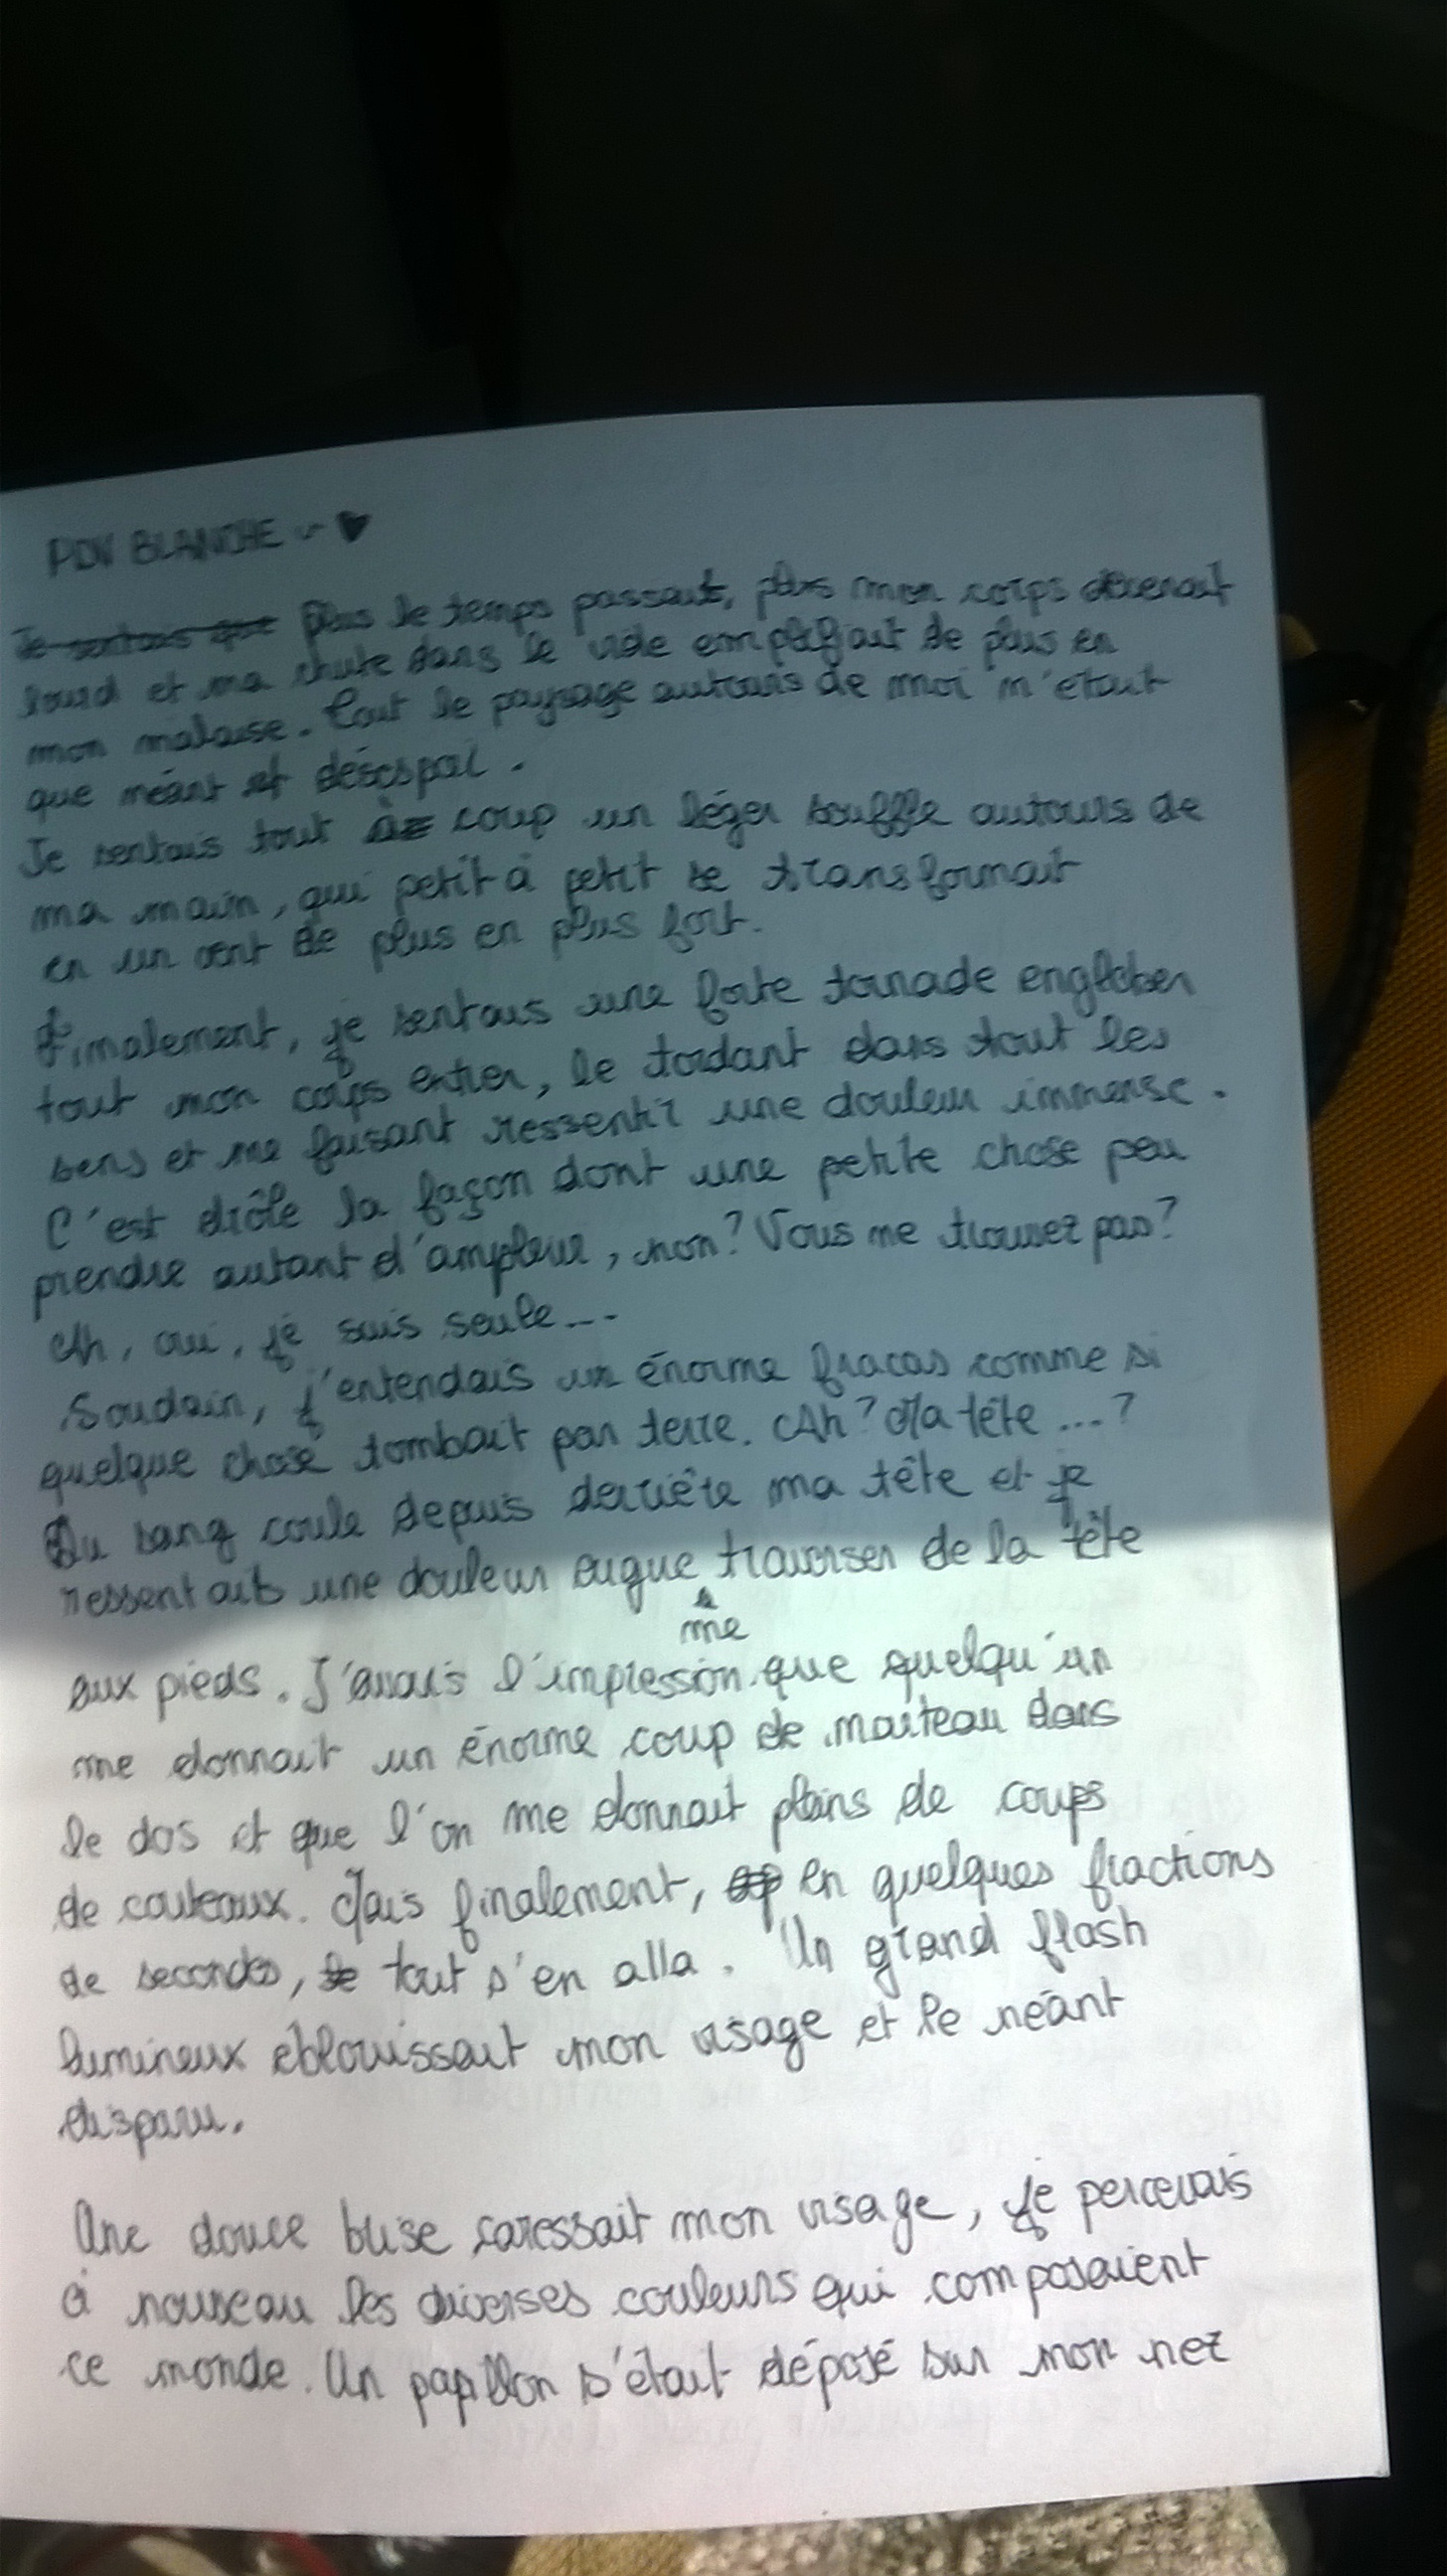 PDV BLANCHE ~ ♥
Je sentais que Plus le temps passait, plus mon corps devenait
lourd et ma chute dans le vide emplifiait de plus en
mon malaise. Tout le paysage autours de moi n'était
que néant et désespoir.
Je sentais tout à coup un léger souffle autours de
ma main, qui petit à petit se transformait
en un vent de plus en plus fort.
Finalement, je sentais une forte tornade englober
tout mon corps entier, le tordant dans tout les
sens et me faisant ressentir une douleur immense.
C'est drôle la façon dont une petite chose peu
prendre autant d'ampleur, non? Vous ne trouvez pas?
Ah, oui, je suis seule...
Soudain, j'entendais un énorme fracas comme si
quelque chose tombait par terre. Ah? Ma tête ...?
Du sang coule depuis derrière ma tête et je
ressentais une douleur aigue traverser de la tête
me
aux pieds. J'avais l'impression que quelqu'un
me donnait un énorme coup de marteau dans
le dos et que l'on me donnait pleins de coups
de couteaux. Mais finalement, en quelques fractions
de secondes, tout s'en alla. Un grand flash
lumineux éblouissait mon visage et le néant
disparu.
Une douce brise caressait mon visage, je percevais
à nouveau les diverses couleurs qui composaient
ce monde. Un papillon s'était déposé sur mon nez